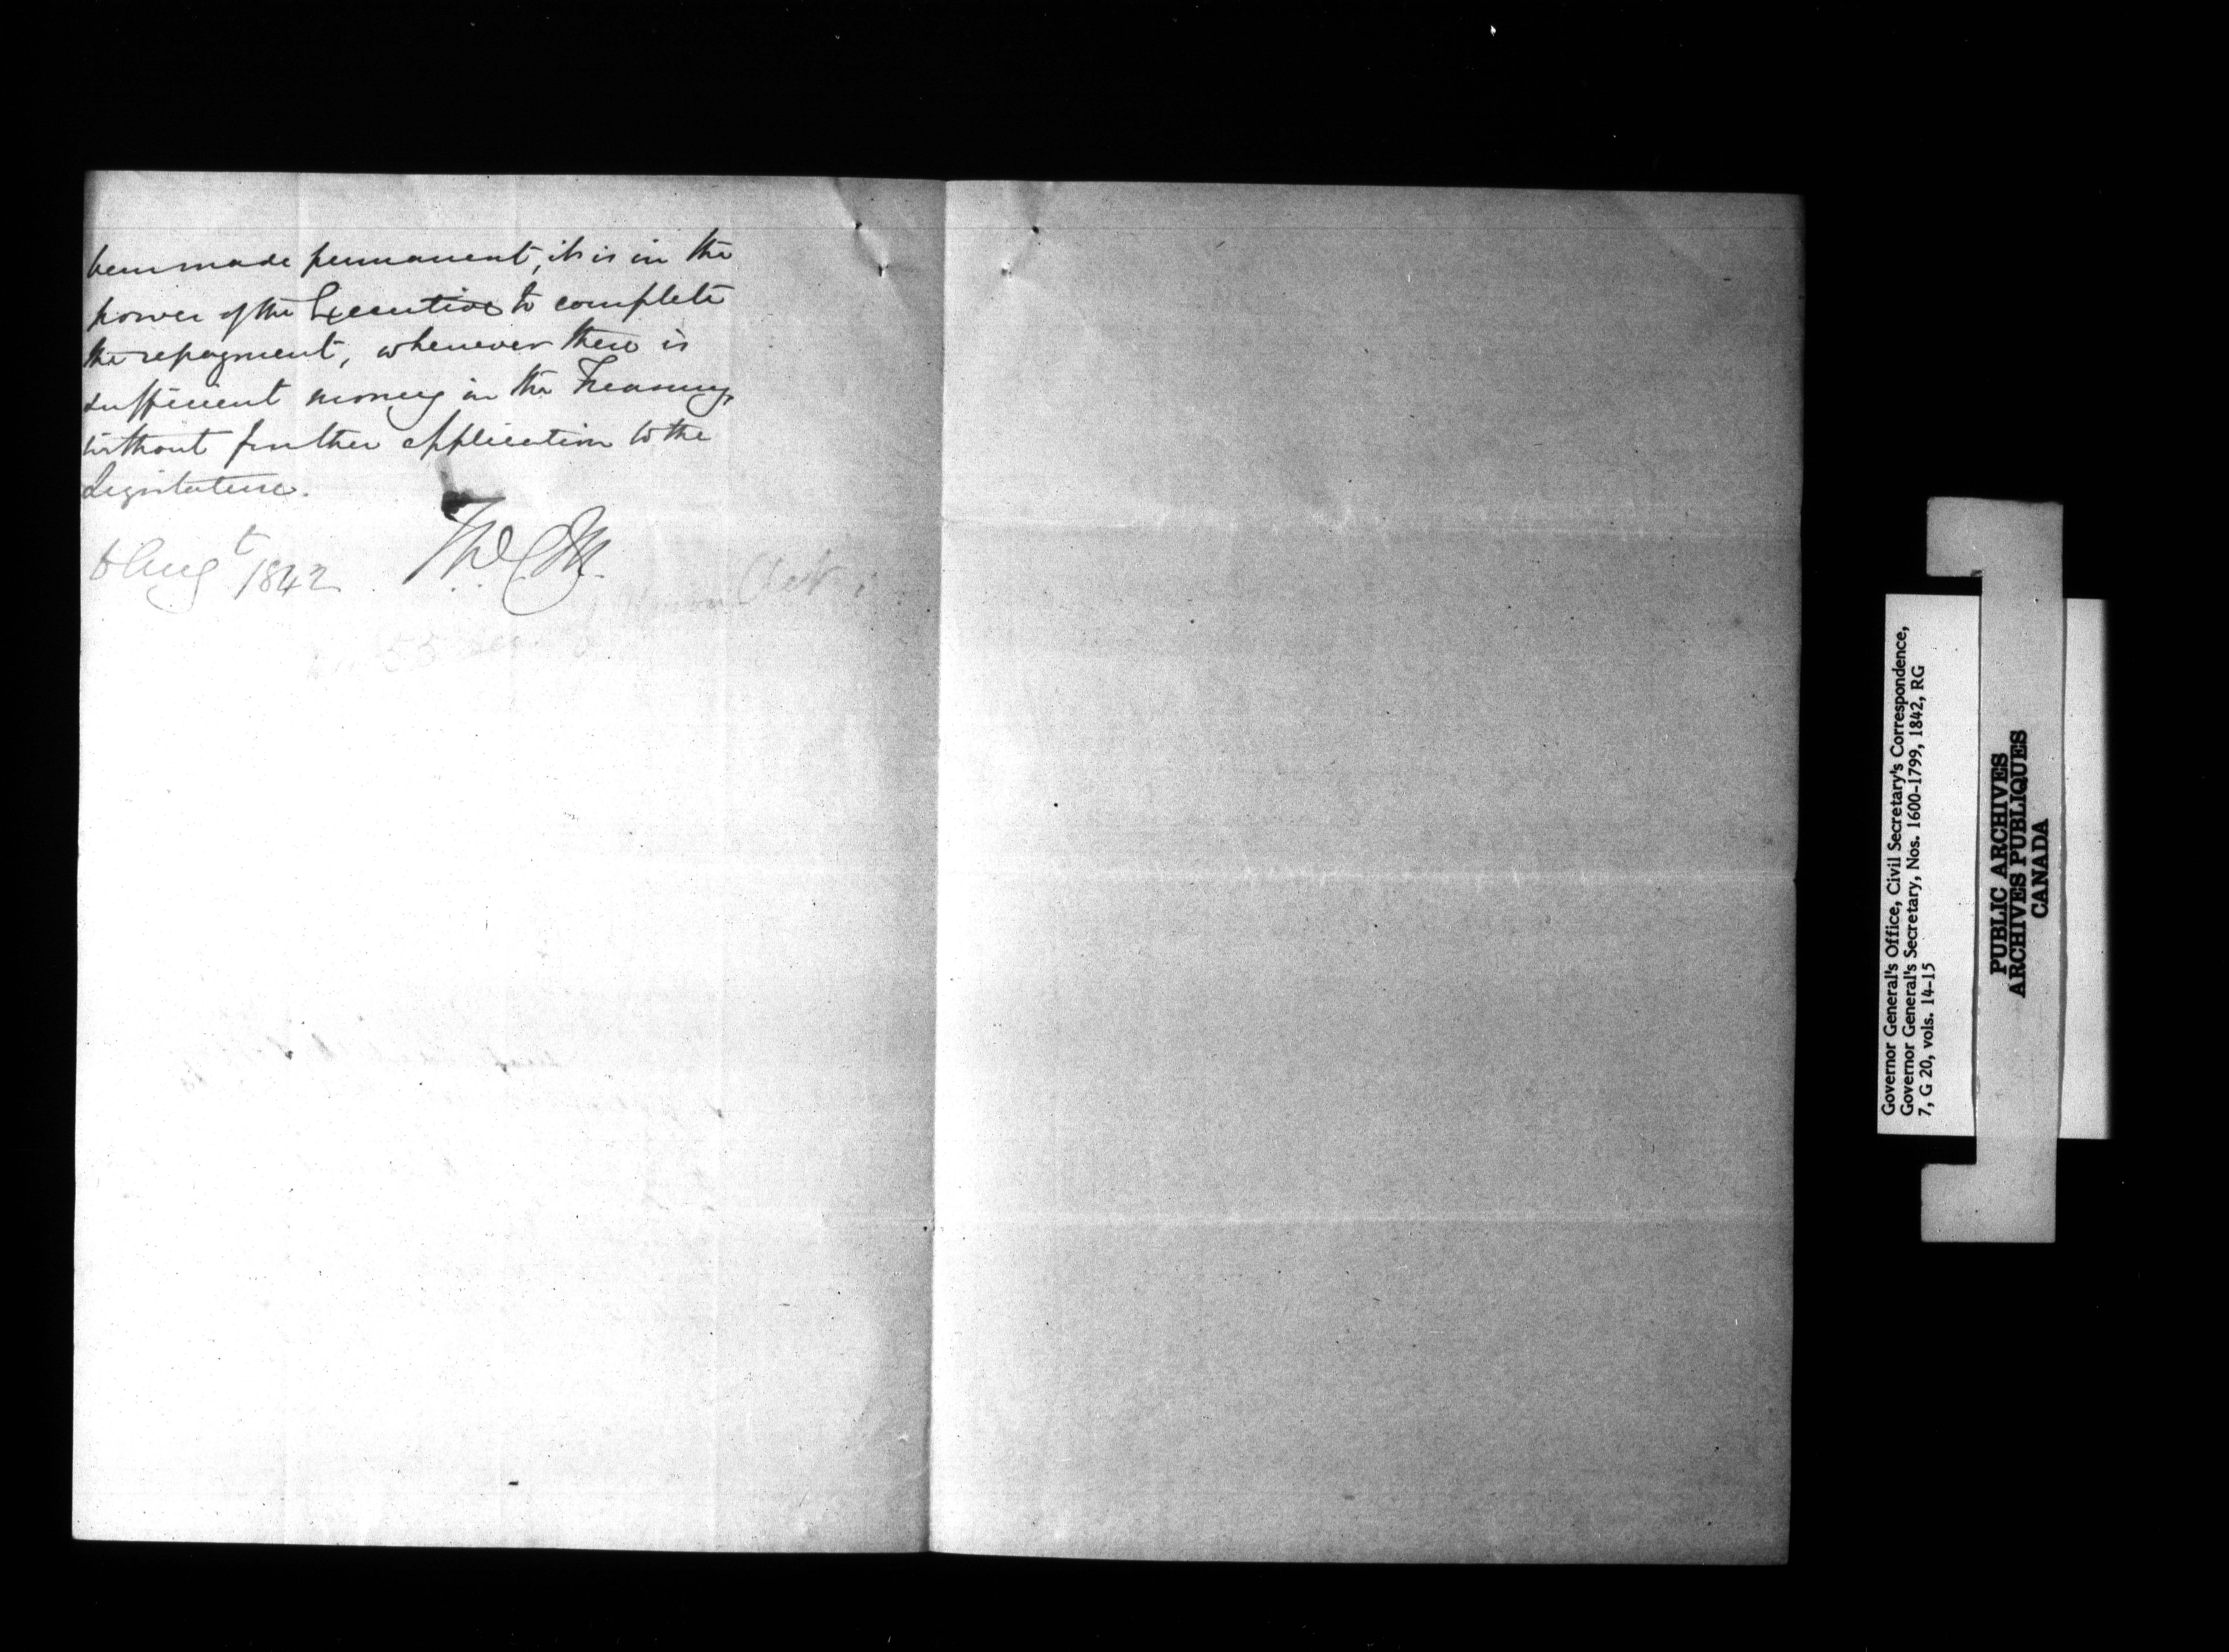 been made permanent, it is in the
power of the Executive to complete
the repayment, whenever there is
sufficient money in the Treasury,
without further application to the
Legislature.
6 Augt 1842
55
Governor General's Office, Civil Secretary's Correspondence,
Governor General's Secretary, Nos. 1600-1799, 1842, RG
7, G 20, vols. 14-15
PUBLIC ARCHIVES
ARCHIVES PUBLIQUES
CANADA